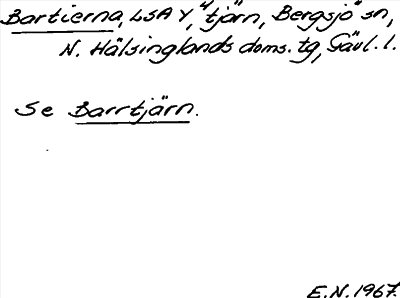 Bartierna, LSA Y, "tjärn, Bergsjö" sn,
N. Hälsinglands doms. tg, Gävl. l.
Se Barrtjärn.
E.N. 1967.